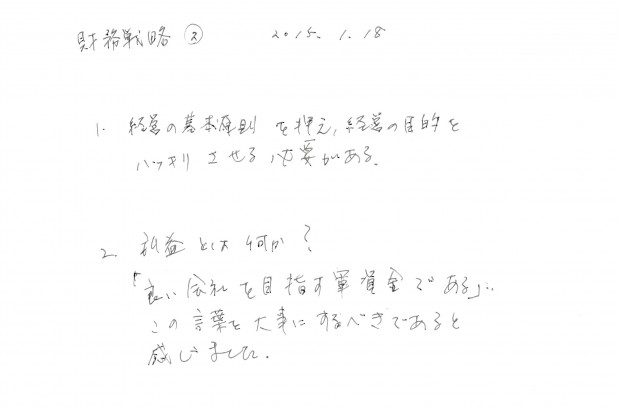 財務戦略 ③ 2015. 1. 18
1. 経営の基本原則 を押え,経営の目的を
ハッキリ させる 必要がある。
2. 利益 とは 何か?
「良い 会社 を目指す軍資金である」..
この 言葉を 大事に するべきであると
感じました。